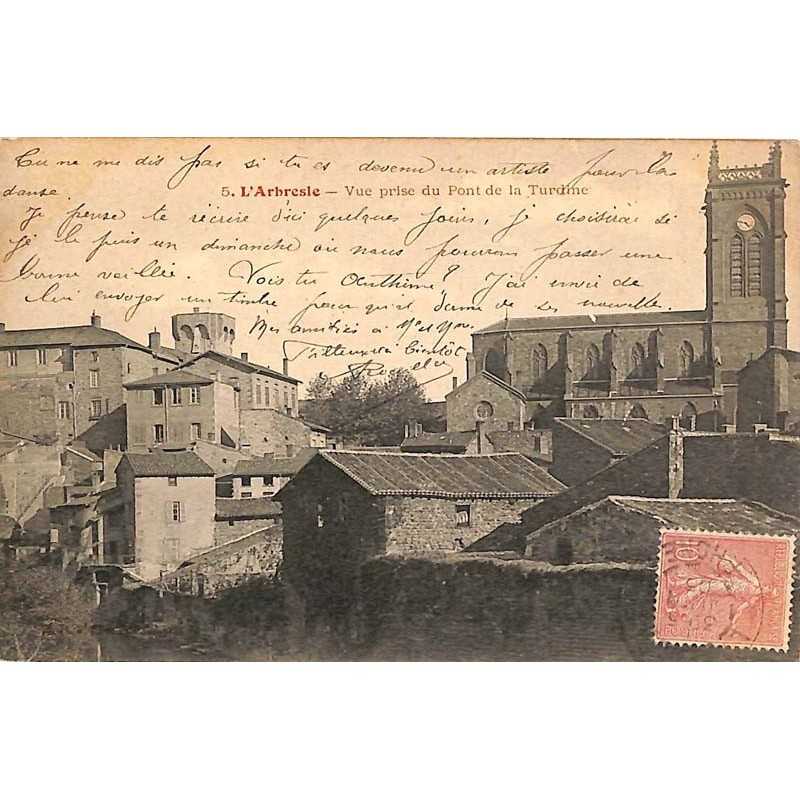 Tu ne me dis pas si tu es devenu un artiste pour la
danse.
5. L'Arbresle — Vue prise du Pont de la Turdine
Je pense te récrire d'ici quelques jours, je choisirai si
je le puis un dimanche où nous pourrons passer une
bonne veillée. Vois tu Onthime? J'ai envie de
lui envoyer un timbre pour qu'il donne de ses nouvelle.
Mes amitiés à Mr et Mme
bientôt
10